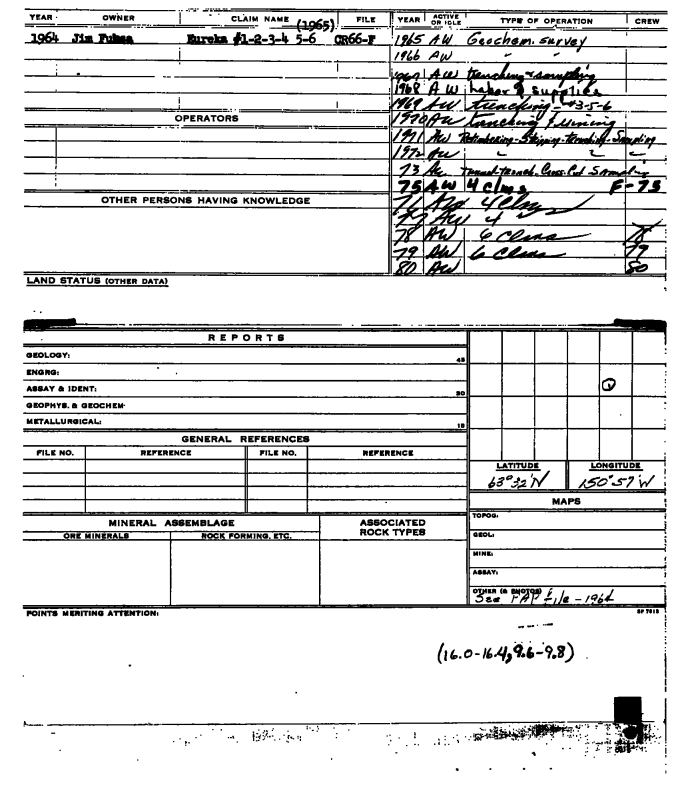 YEAR OWNER CLAIM NAME (1965) FILE YEAR ACTIVE OR IDLE TYPE OF OPERATION CREW
1964 Jim Fuksa Eureka #1-2-3-4 5-6 CR66-F 1965 AW Geochem. survey
1966 AW " "
1967 AW trenching & sampling
1968 AW Labor & supplies
1969 AW trenching - #3-5-6
OPERATORS
1970 AW trenching & mining
1971 AW Retimbering-Stripping-Trenching-Sampling
1972 AW " " "
73 AW tunnel-trench. Cross-Cut Sampling
75 AW 4 clms F-75
OTHER PERSONS HAVING KNOWLEDGE
AW 4 Clms
77 AW 4
78 AW 6 Clms 78
79 AW 6 Clms 79
80 AW 80
LAND STATUS (OTHER DATA)
REPORTS
GEOLOGY: 45
ENGRG:
ASSAY & IDENT: 30
GEOPHYS. & GEOCHEM.
METALLURGICAL: 15
GENERAL REFERENCES
FILE NO. REFERENCE FILE NO. REFERENCE
LATITUDE LONGITUDE
63°32'N 150°57'W
MAPS
TOPOG:
MINERAL ASSEMBLAGE ASSOCIATED ROCK TYPES
ORE MINERALS ROCK FORMING, ETC.
GEOL:
MINE:
ASSAY:
OTHER (& PHOTOS)
See PAP File - 1964
POINTS MERITING ATTENTION: SP 7613
(16.0-16.4, 9.6-9.8)